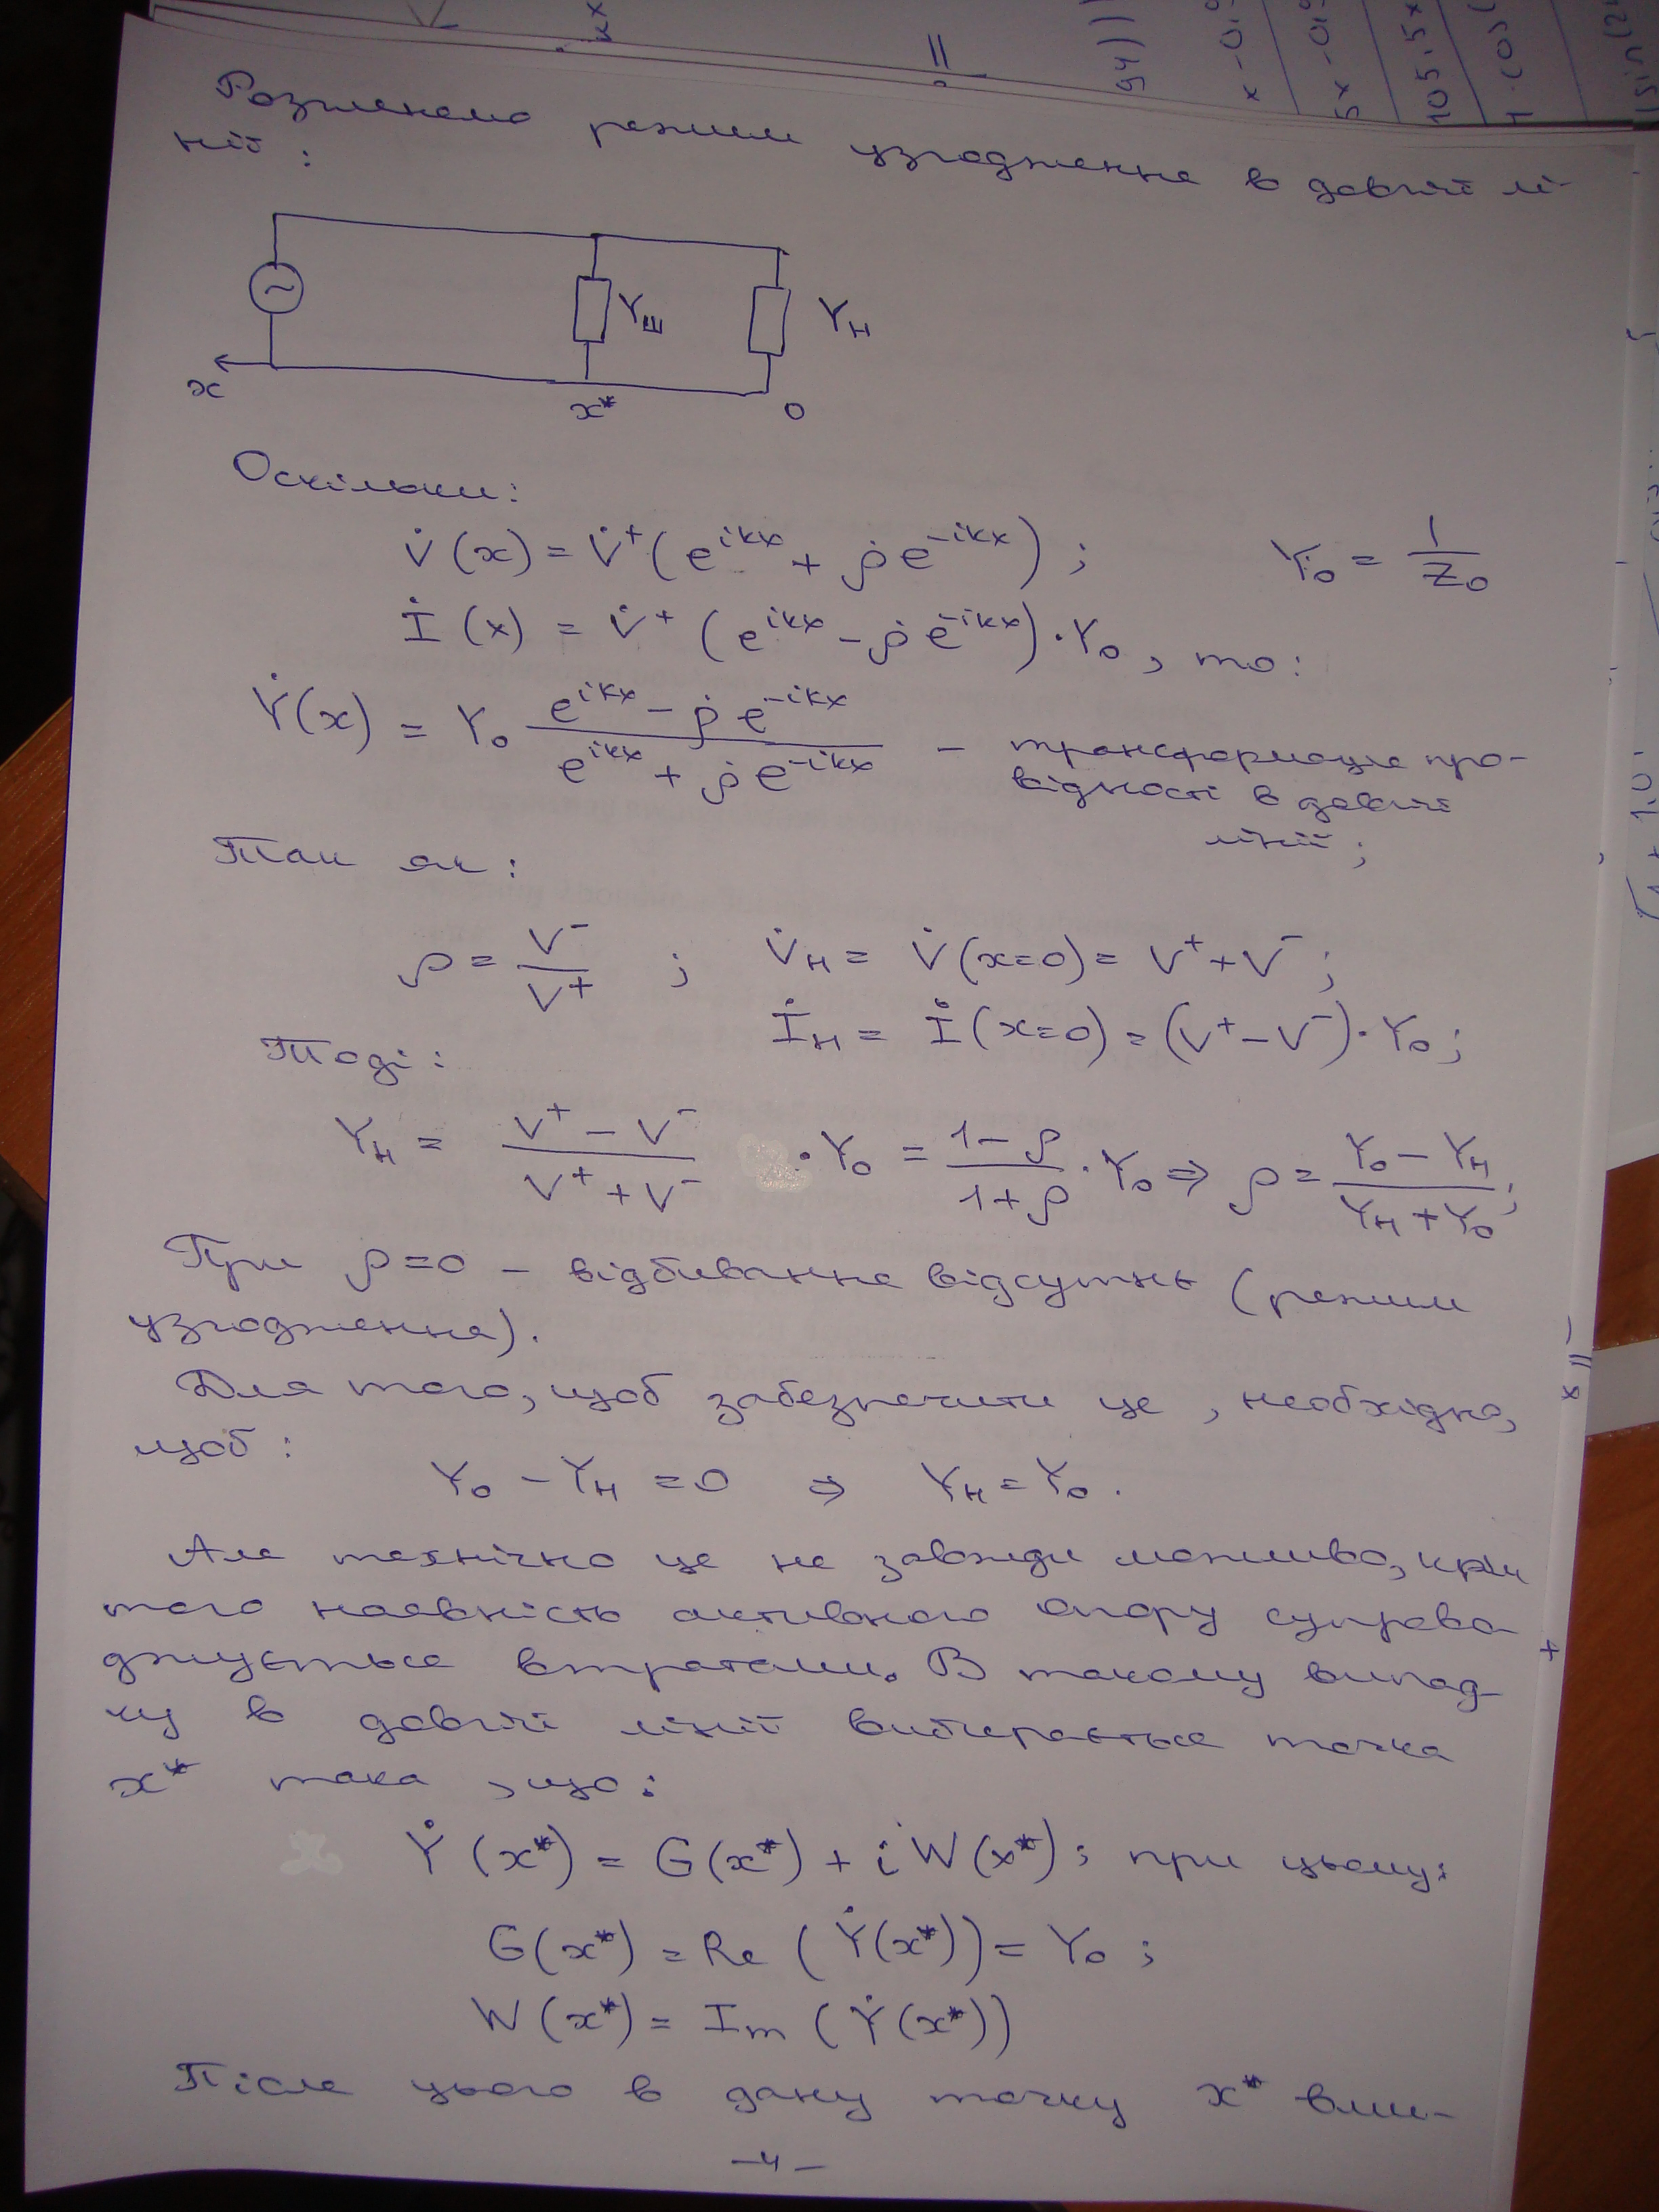 Розглянемо режим узгодження в довгій лі-
нії:
~
Yш
Yн
x
x*
0
Оскільки:
V̇(x) = V̇⁺(e^{ikx} + ρ̇e^{-ikx}) ; Y₀ = 1/Z₀
İ(x) = V̇⁺(e^{ikx} - ρ̇e^{-ikx})·Y₀, то:
Ẏ(x) = Y₀ (e^{ikx} - ρ̇e^{-ikx})/(e^{ikx} + ρ̇e^{-ikx}) - трансформація про-
відності в довгій
лінії;
Так як:
ρ = V⁻/V⁺ ; V̇н = V̇(x=0) = V⁺+V⁻;
İн = İ(x=0) = (V⁺-V⁻)·Y₀;
Тоді:
Yн = (V⁺ - V⁻)/(V⁺ + V⁻) ·Y₀ = (1-ρ)/(1+ρ)·Y₀ ⇒ ρ = (Y₀ - Yн)/(Yн + Y₀);
При ρ=0 - відбивання відсутнє (режим
узгодження).
Для того, щоб забезпечити це, необхідно,
щоб:
Y₀ - Yн = 0 ⇒ Yн = Y₀.
Але технічно це не завжди можливо, крім
того наявність активного опору супрово
джується втратами. В такому випад-
ку в довгій лінії вибирається точка
x* така, що:
Ẏ(x*) = G(x*) + iW(x*); при цьому:
G(x*) = Re (Ẏ(x*)) = Y₀;
W(x*) = Im (Ẏ(x*))
Після цього в дану точку x* вми-
-4-